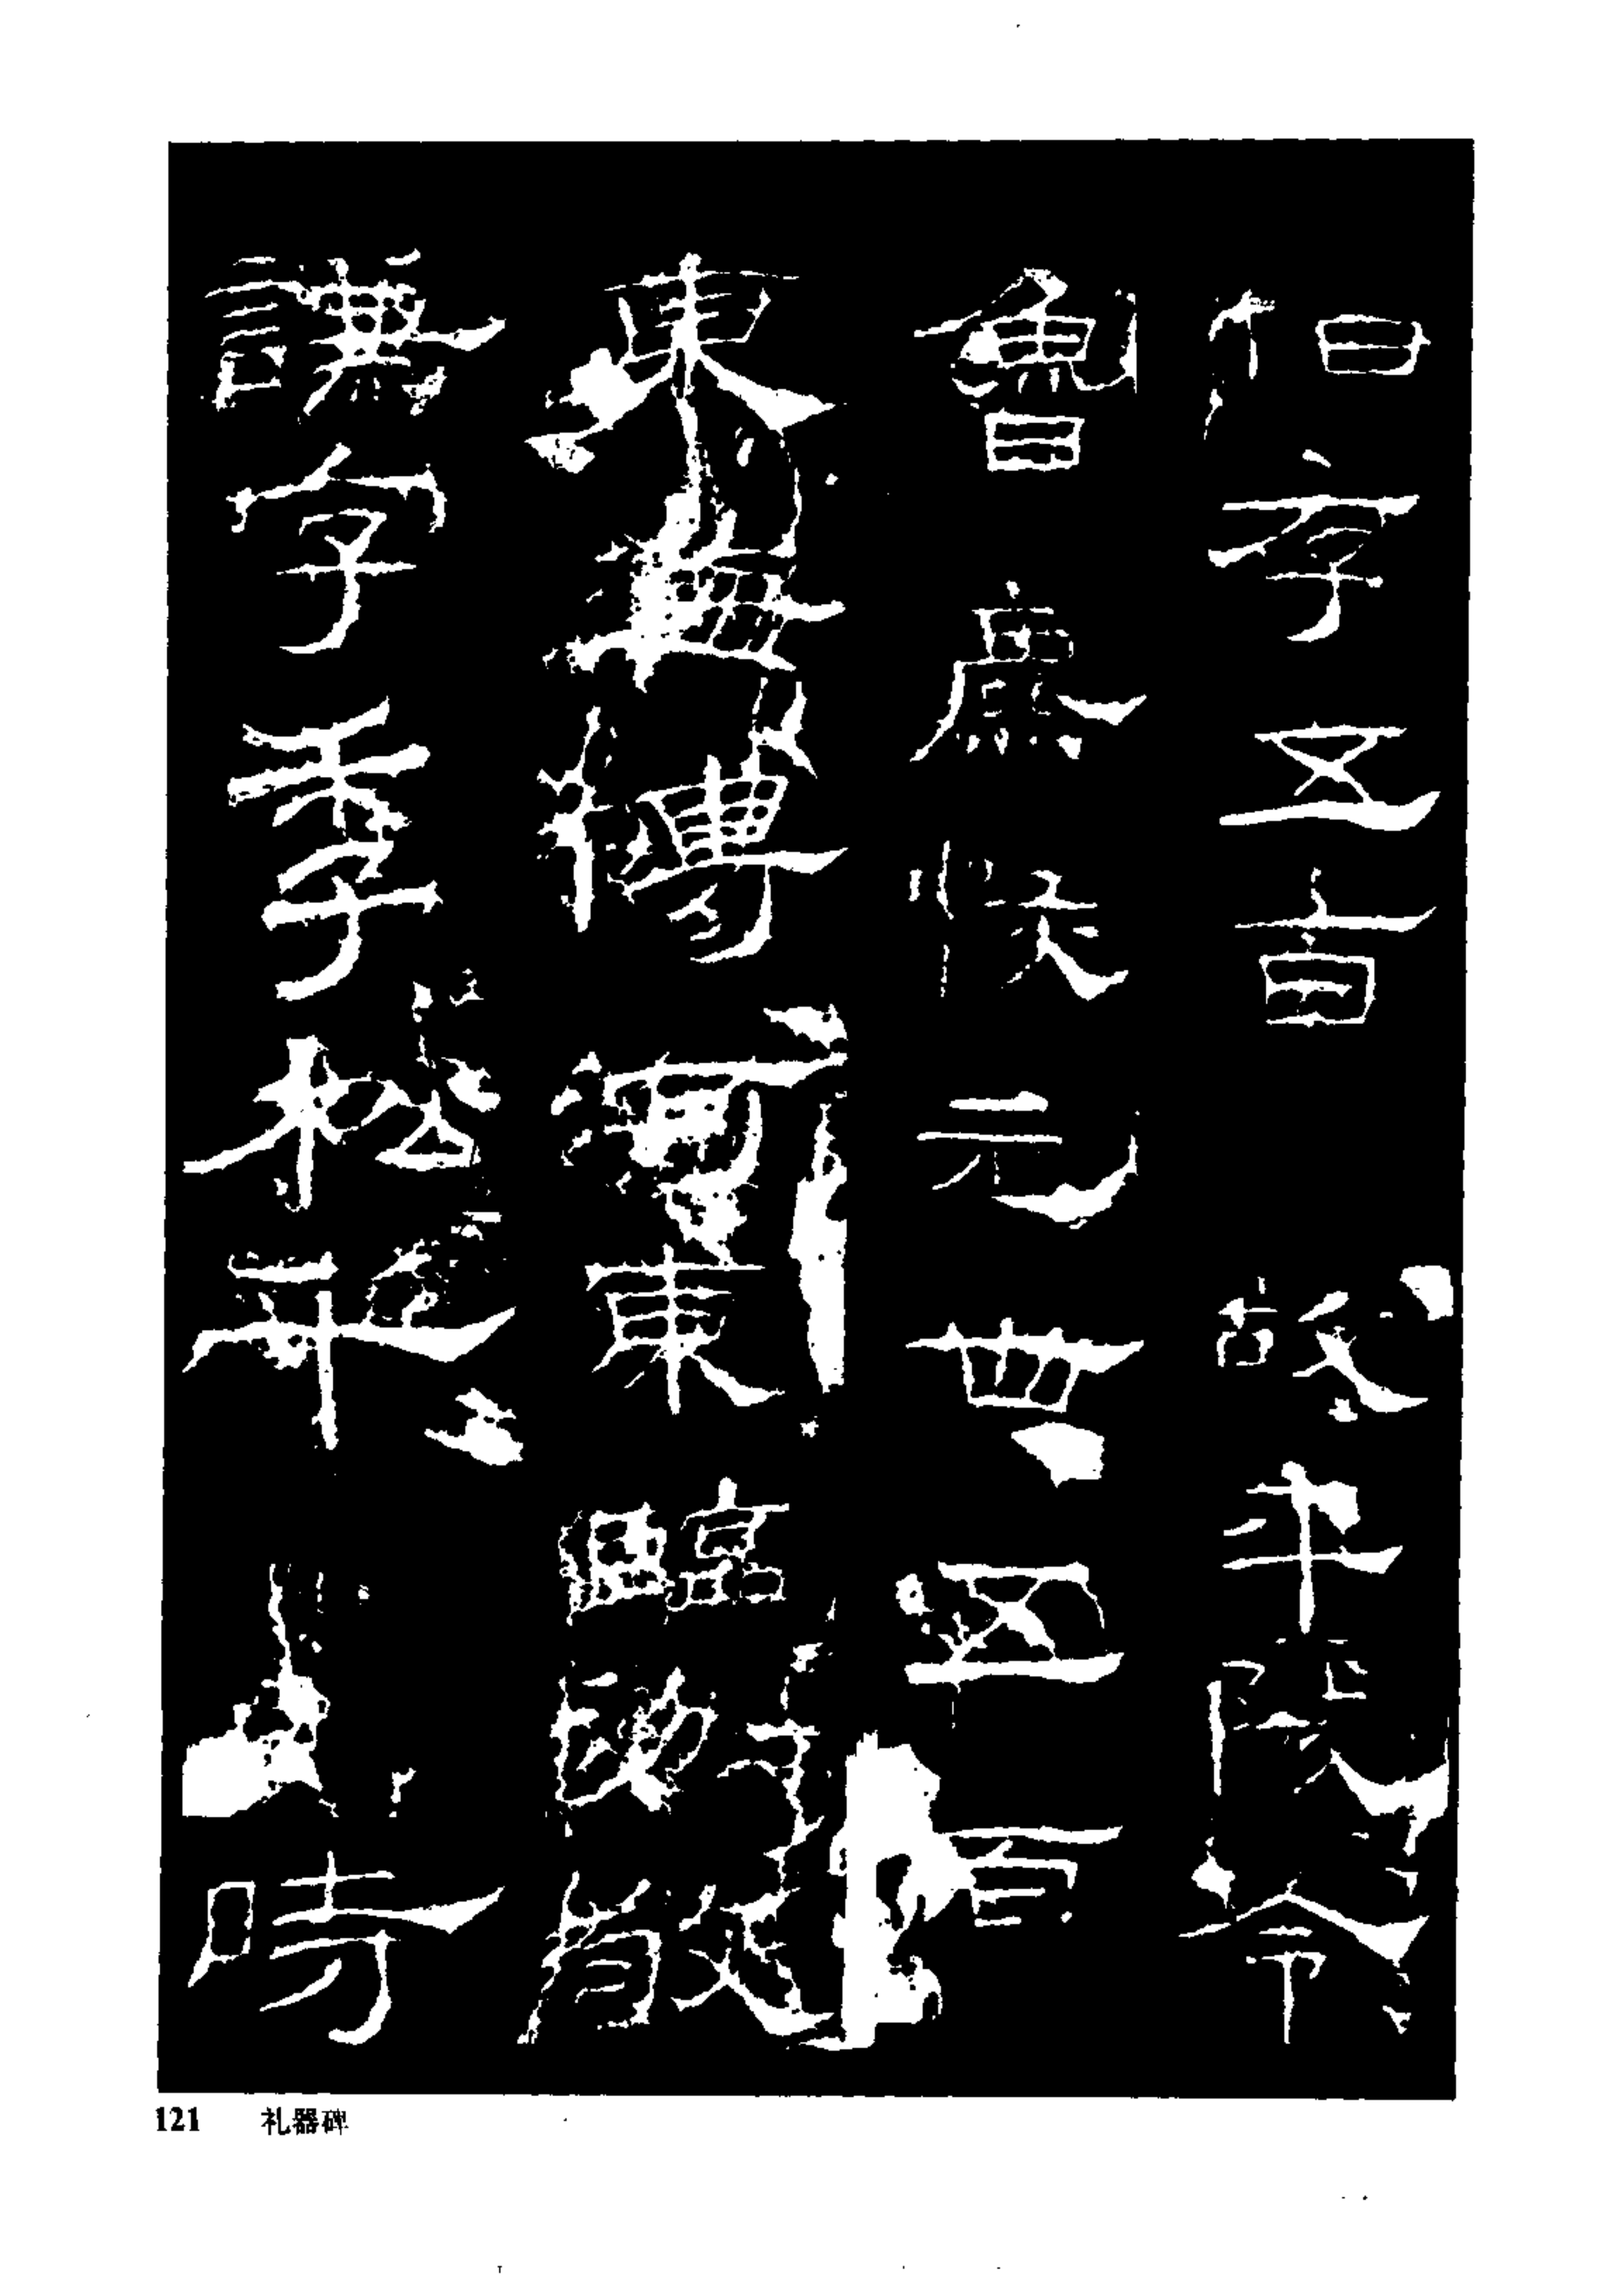 伯存五百 故平陵令
魯麃恢元世五百
東海傅河東臨汾敬
謙字季松千 時
121 礼器碑